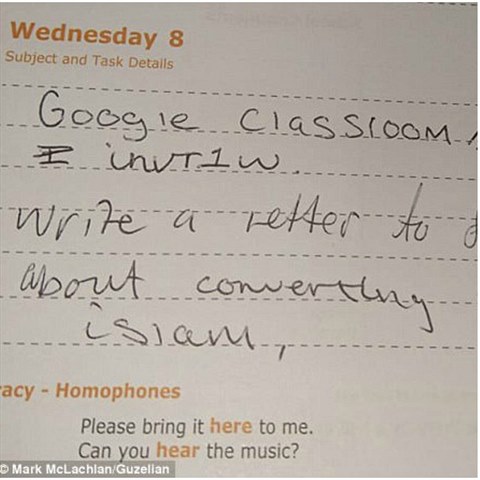 Wednesday 8
Subject and Task Details
Google Classroom
Write a letter to
about converting
islam,
acy - Homophones
Please bring it here to me.
Can you hear the music?
© Mark McLachlan/Guzelian